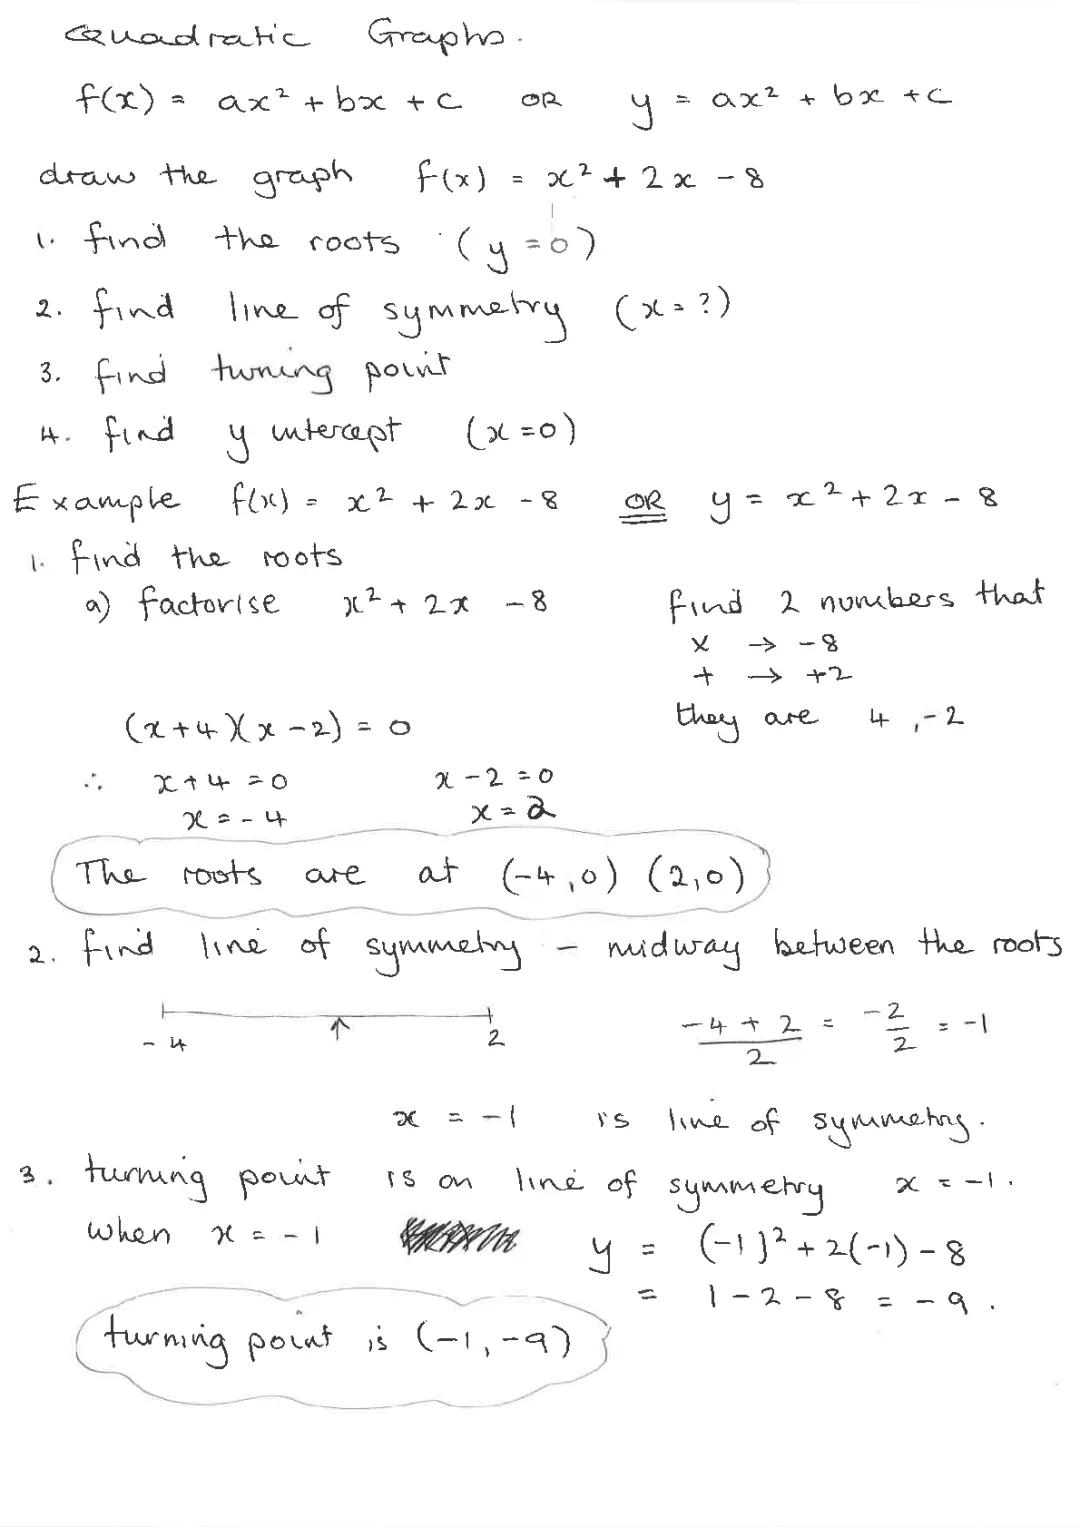 Quadratic Graphs.
f(x) = ax² + bx + c OR y = ax² + bx + c
draw the graph f(x) = x² + 2x - 8
1. find the roots (y = 0)
2. find line of symmetry (x = ?)
3. find turning point
4. find y intercept (x = 0)
Example f(x) = x² + 2x - 8 OR y = x² + 2x - 8
1. find the roots
a) factorise x² + 2x - 8 find 2 numbers that
x → -8
+ → +2
(x + 4)(x - 2) = 0 they are 4, -2
∴ x + 4 = 0 x - 2 = 0
x = -4 x = 2
The roots are at (-4, 0) (2, 0)
2. find line of symmetry - midway between the roots
-4 2 (-4 + 2)/2 = -2/2 = -1
x = -1 is line of symmetry.
3. turning point is on line of symmetry x = -1.
when x = -1 y = (-1)² + 2(-1) - 8
= 1 - 2 - 8 = -9.
turning point is (-1, -9)